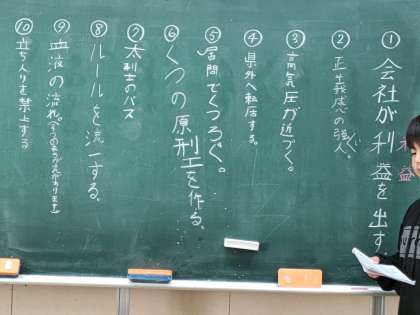 ①会社が利益を出す
利益
②正義感の強い人。
③高気圧が近づく。
④県外へ転居する。
⑤居間でくつろぐ。
⑥くつの原型を作る。
⑦大判のバス
⑧ルールを統一する。
⑨血液の流れ。
⑩立ち入りを禁止する